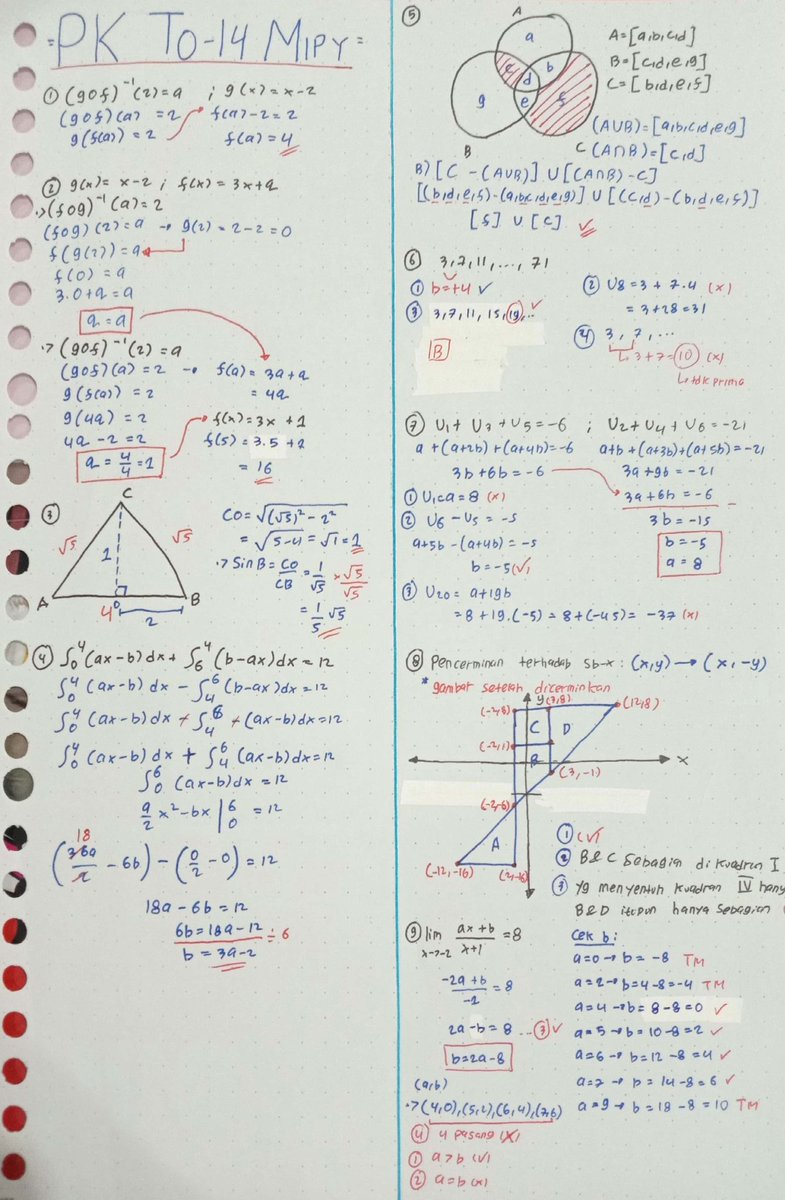 = PK TO-14 MIPY =
① (gof)⁻¹(2)=a ; g(x)=x-2
(gof)(a) = 2 f(a)-2=2
g(f(a)) = 2 f(a)=4
② g(x)= x-2 ; f(x)= 3x+a
·> (fog)⁻¹(a)=2
(fog)(2)=a → g(2)=2-2=0
f(g(2))=a
f(0) = a
3.0+a=a
a=a
·> (gof)⁻¹(2)=a
(gof)(a)=2 → f(a)= 3a+a
g(f(a)) = 2 = 4a
g(4a) = 2 f(x)=3x+1
4a-2=2 f(5)=3.5+1
a=4/4=1 = 16
③ C
√5 1 √5
A 4 0 2 B
CO=√((√5)²-2²)
=√5-4=√1=1
·> Sin B=CO/CB=1/√5×√5/√5
=1/5√5
④ ∫₀⁴(ax-b)dx+∫₆⁴(b-ax)dx=12
∫₀⁴(ax-b)dx-∫₄⁶(b-ax)dx=12
∫₀⁴(ax-b)dx+∫₄⁶+(ax-b)dx=12
∫₀⁴(ax-b)dx+∫₄⁶(ax-b)dx=12
∫₀⁶(ax-b)dx=12
a/2x²-bx|₀⁶=12
18
(36a/2-6b)-(0/2-0)=12
18a-6b=12
6b=18a-12 ÷6
b=3a-2
⑤ A
a
c b
d
g e f
B C
A=[a,b,c,d]
B=[c,d,e,g]
C=[b,d,e,f]
(AUB)=[a,b,c,d,e,g]
(A∩B)=[c,d]
B)[C-(AUB)]U[(A∩B)-C]
[(b,d,e,f)-(a,b,c,d,e,g)]U[(c,d)-(b,d,e,f)]
[f] U [c] ✓
⑥ 3,7,11,...,71
① b=+4 ✓ ② U8=3+7.4 (x)
=3+28=31
③ 3,7,11,15,19,.. ✓ ④ 3,7,...
↳3+7=10 (x)
↳tdk prima
B
⑦ U1+U3+U5=-6 ; U2+U4+U6=-21
a+(a+2b)+(a+4b)=-6 a+b+(a+3b)+(a+5b)=-21
3b+6b=-6 3a+9b=-21
① U1=a=8 (x) 3a+6b=-6 -
② U6-U5=-5 3b=-15
a+5b-(a+4b)=-5 b=-5
b=-5(√) a=8
③ U20=a+19b
=8+19.(-5)=8+(-45)=-37 (x)
⑧ Pencerminan terhadap sb-x: (x,y)→(x,-y)
*gambar setelah dicerminkan
y
(-2,8) (3,8) (12,8)
C D
(-2,1)
B x
(3,-1)
(-2,-6)
A
(-12,-16)
① (√)
② B&C sebagian di kuadran I
③ Yg menyentuh kuadran IV hany
B&D itupun hanya sebagian
⑨ lim x→-2 ax+b/x+1=8
-2a+b/-2=8
2a-b=8 ...③✓
b=2a-8
(a,b)
·>(4,0),(5,2),(6,4),(7,6)
④ 4 pasang (x)
① a>b (√)
② a=b (x)
Cek b:
a=0→b=-8 TM
a=2→b=4-8=-4 TM
a=4→b=8-8=0 ✓
a=5→b=10-8=2 ✓
a=6→b=12-8=4 ✓
a=7→b=14-8=6 ✓
a=9→b=18-8=10 TM